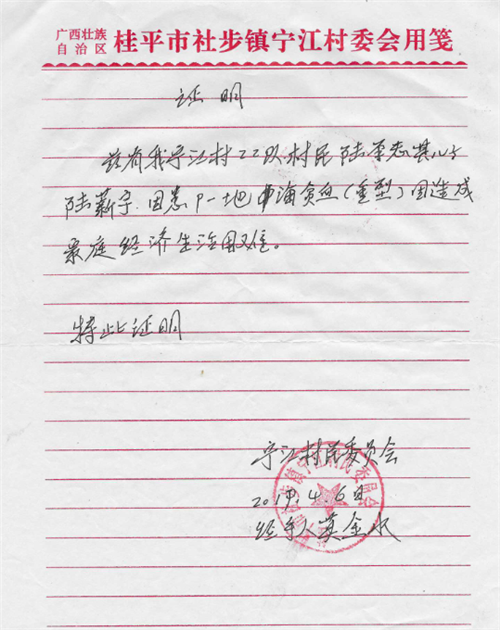 广西壮族
自治区
桂平市社步镇宁江村委会用笺
证明
兹有我宁江村22队村民陆荣志其儿子
陆薪宇.因患β一地中海贫血(重型)因造成
家庭经济生活困难。
特此证明
宁江村民委员会
2019.4.6日
经手人莫金水